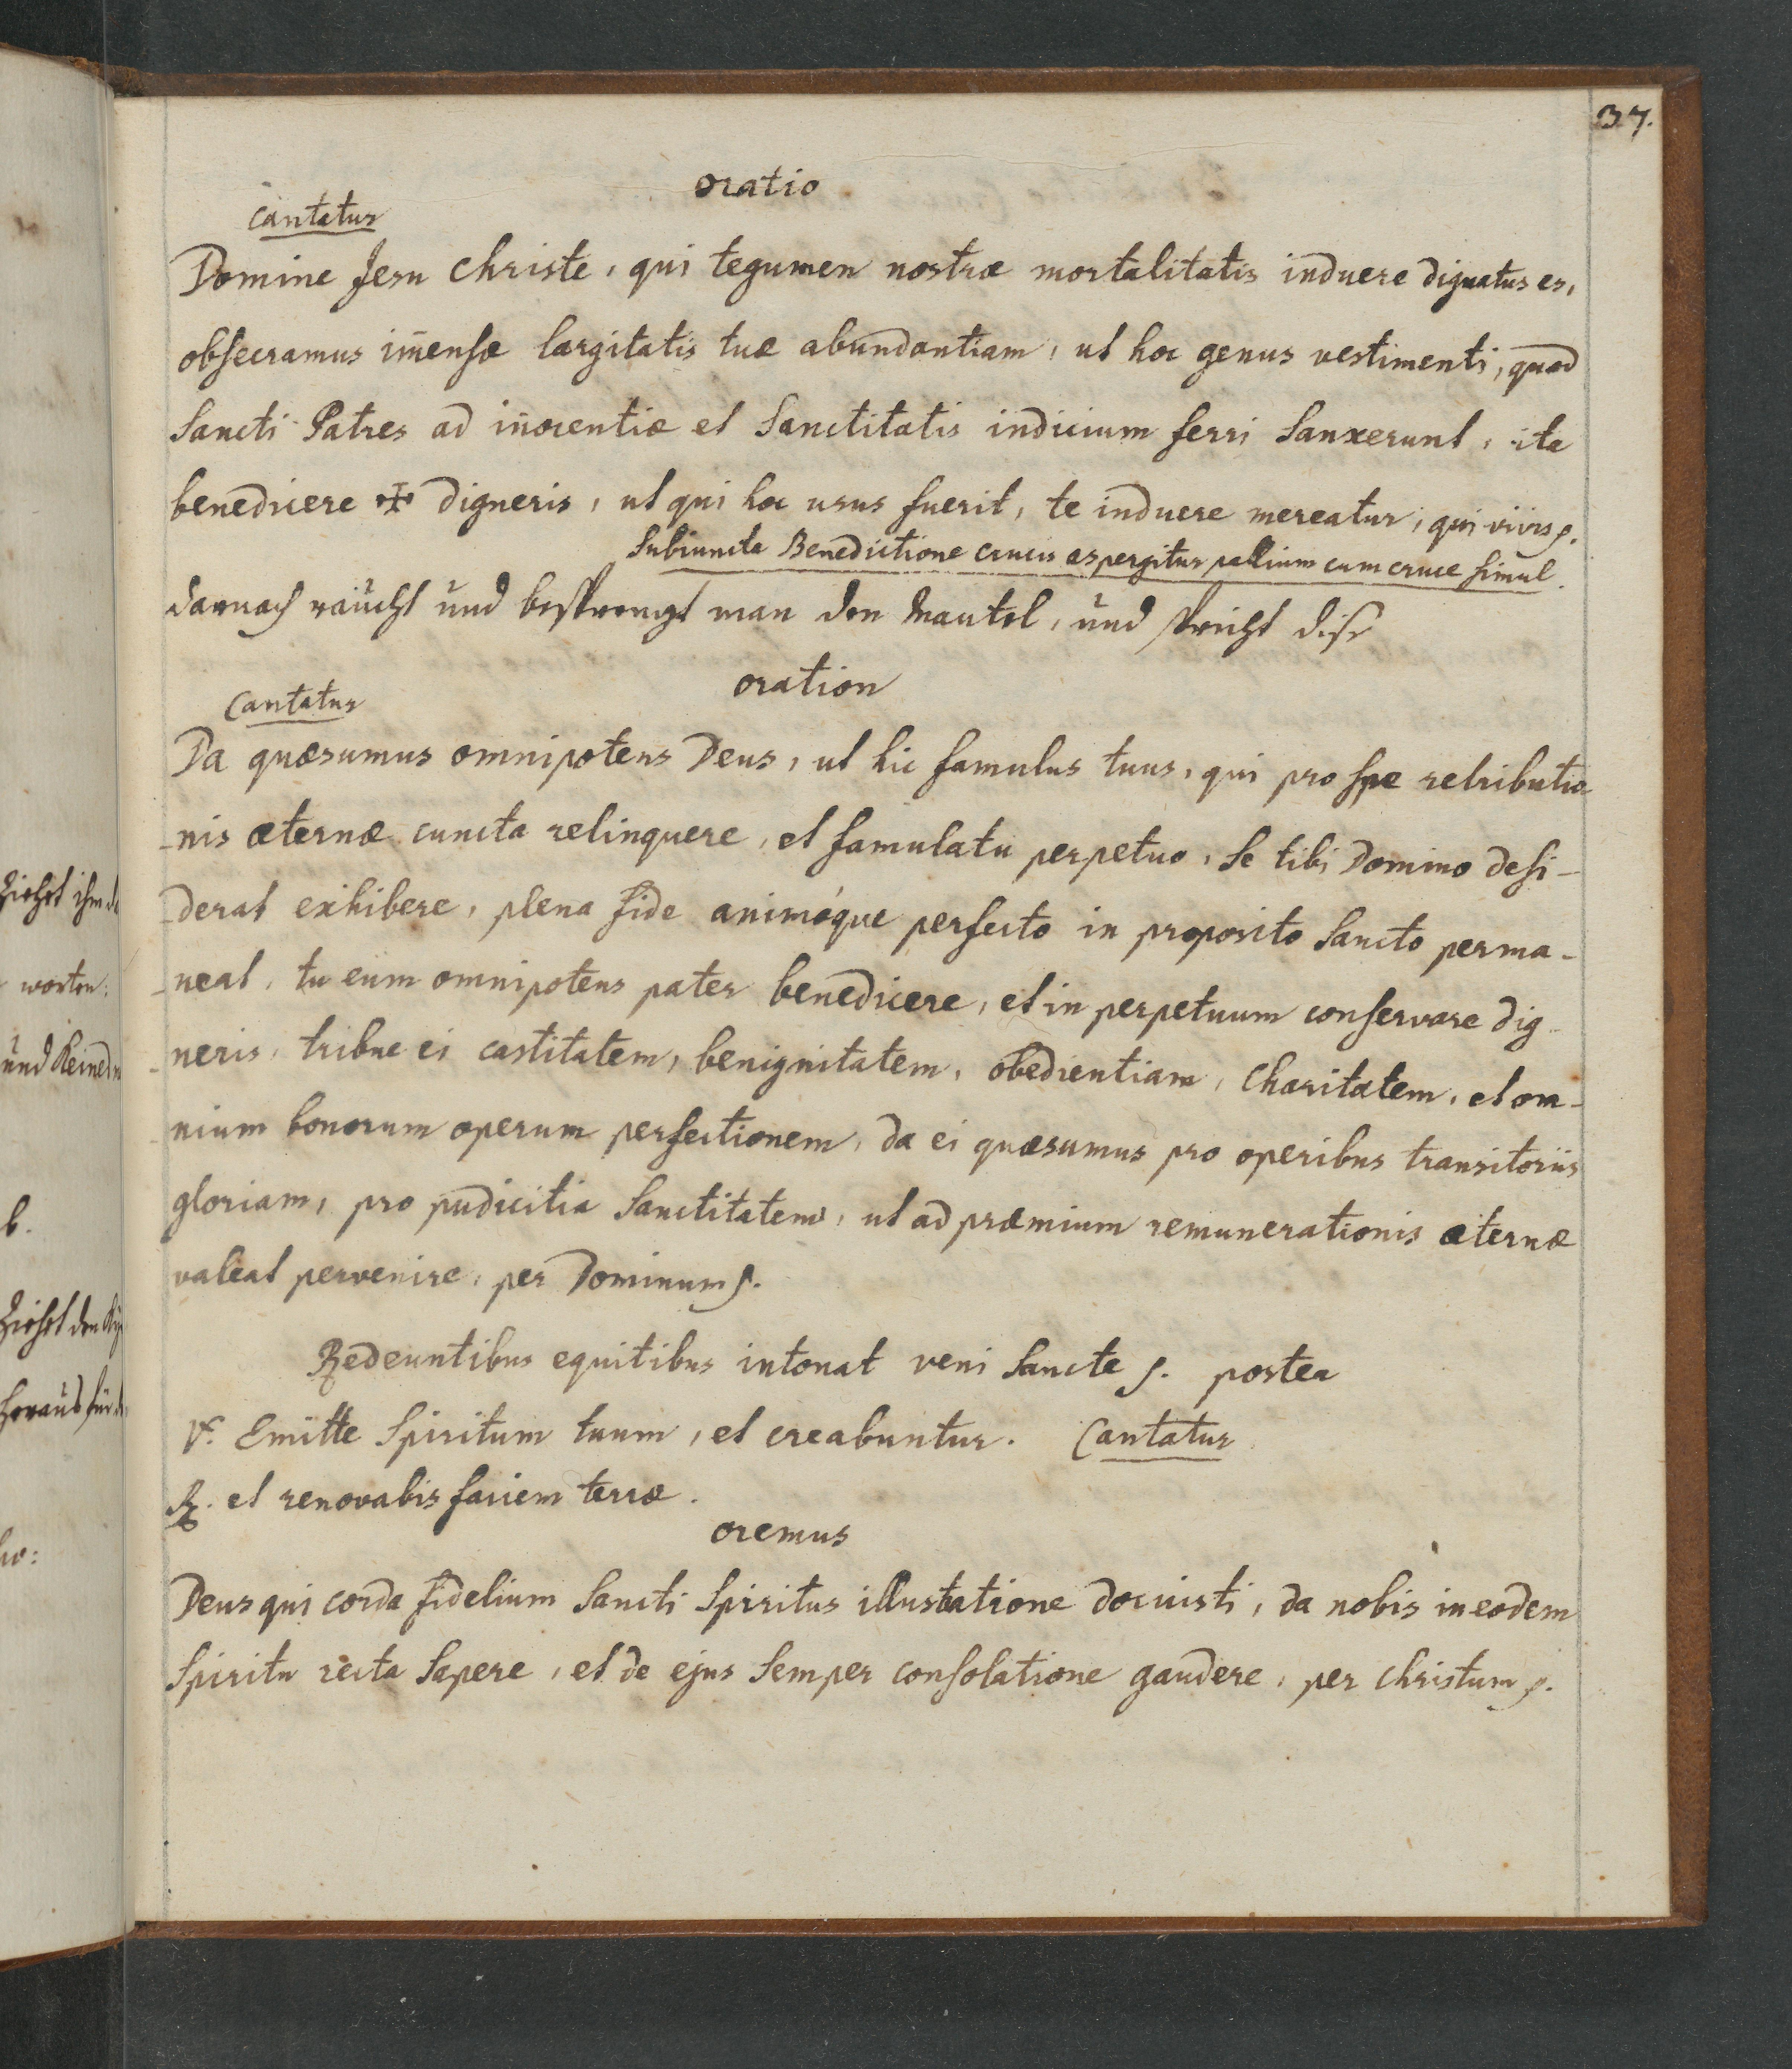 37.
oratio
cantatur
Domine Jesu Christe, qui tegumen nostræ mortalitatis induere dignatus es,
obsecramus im̄ensæ largitatis tuæ abundantiam, ut hoc genus vestimenti, quod
Sancti Patres ad in̄ocentiæ et Sanctitatis indicium ferri Sanxerunt, ita
benedicere ✠ digneris, ut qui hoc usus fuerit, te induere mereatur, qui vivis ꝭ.
Subiuncta Benedictione crucis aspergitur pallium cum cruce simul.
darnach räucht und besprengt man den Mantel, und spricht dise
oration
Cantatur
Da quæsumus omnipotens Deus, ut hic famulus tuus, qui pro spe retributio
-nis æternæ cuncta relinquere, et famulatu perpetuo, Se tibi Domino desi-
-derat exhibere, plena fide animóque perfecto in proposito Sancto perma-
-neat, tu eum omnipotens pater benedicere, et in perpetuum conservare dig-
-neris, tribue ei castitatem, benignitatem, obedientiam, Charitatem, et om-
-nium bonorum operum perfectionem, da ei quæsumus pro operibus transitoriis
gloriam, pro pudicitia Sanctitatem, ut ad præmium remunerationis æternæ
valeat pervenire, per Dominum ꝭ.
Redeuntibus equitibus intonat veni Sancte ꝭ. postea
℣. Emitte Spiritum tuum, et creabuntur. Cantatur
℟. et renovabis faciem terræ.
oremus
Deus qui corda fidelium Sancti Spiritus illustratione docuisti, da nobis in eodem
Spiritu recta Sapere, et de ejus Semper consolatione gaudere, per Christum ꝭ.